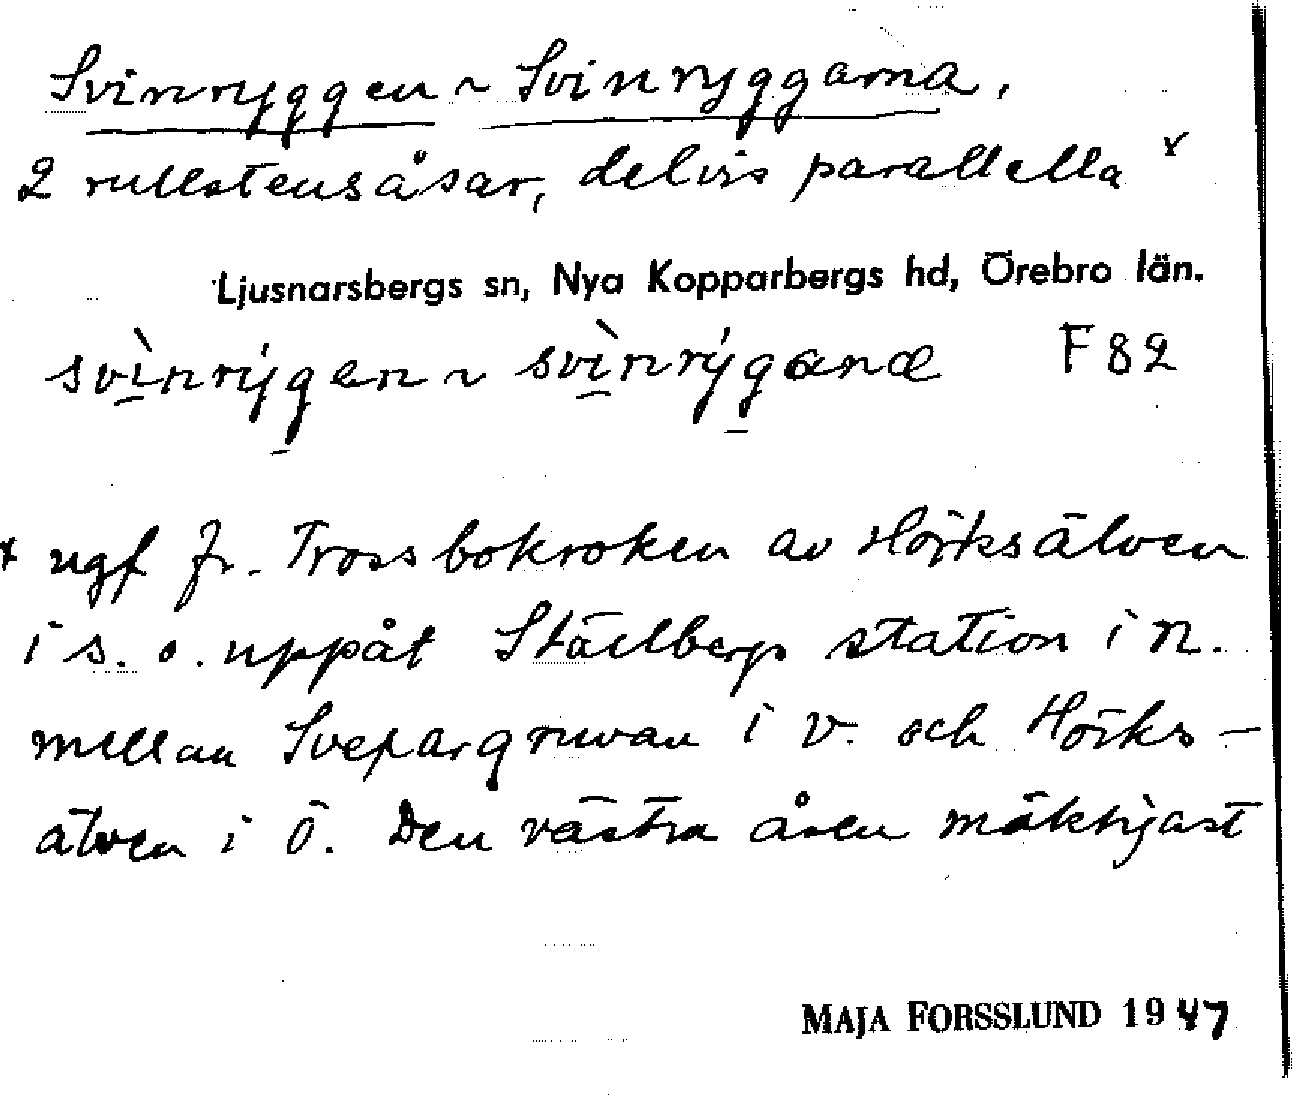 Svinryggen ~ Svinryggarna,
2 rullstensåsar, delvis parallella x
Ljusnarsbergs sn, Nya Kopparbergs hd, Örebro län.
svìnrýgen ~ svìnrýganæ F 82
x ugf fr. Trossbokroken av Hörksälven
i s. o. uppåt Ställbergs station i n.
mellan Svepargruvan i v. och Hörks-
älven i ö. Den västra åsen mäktigast
MAJA FORSSLUND 1947